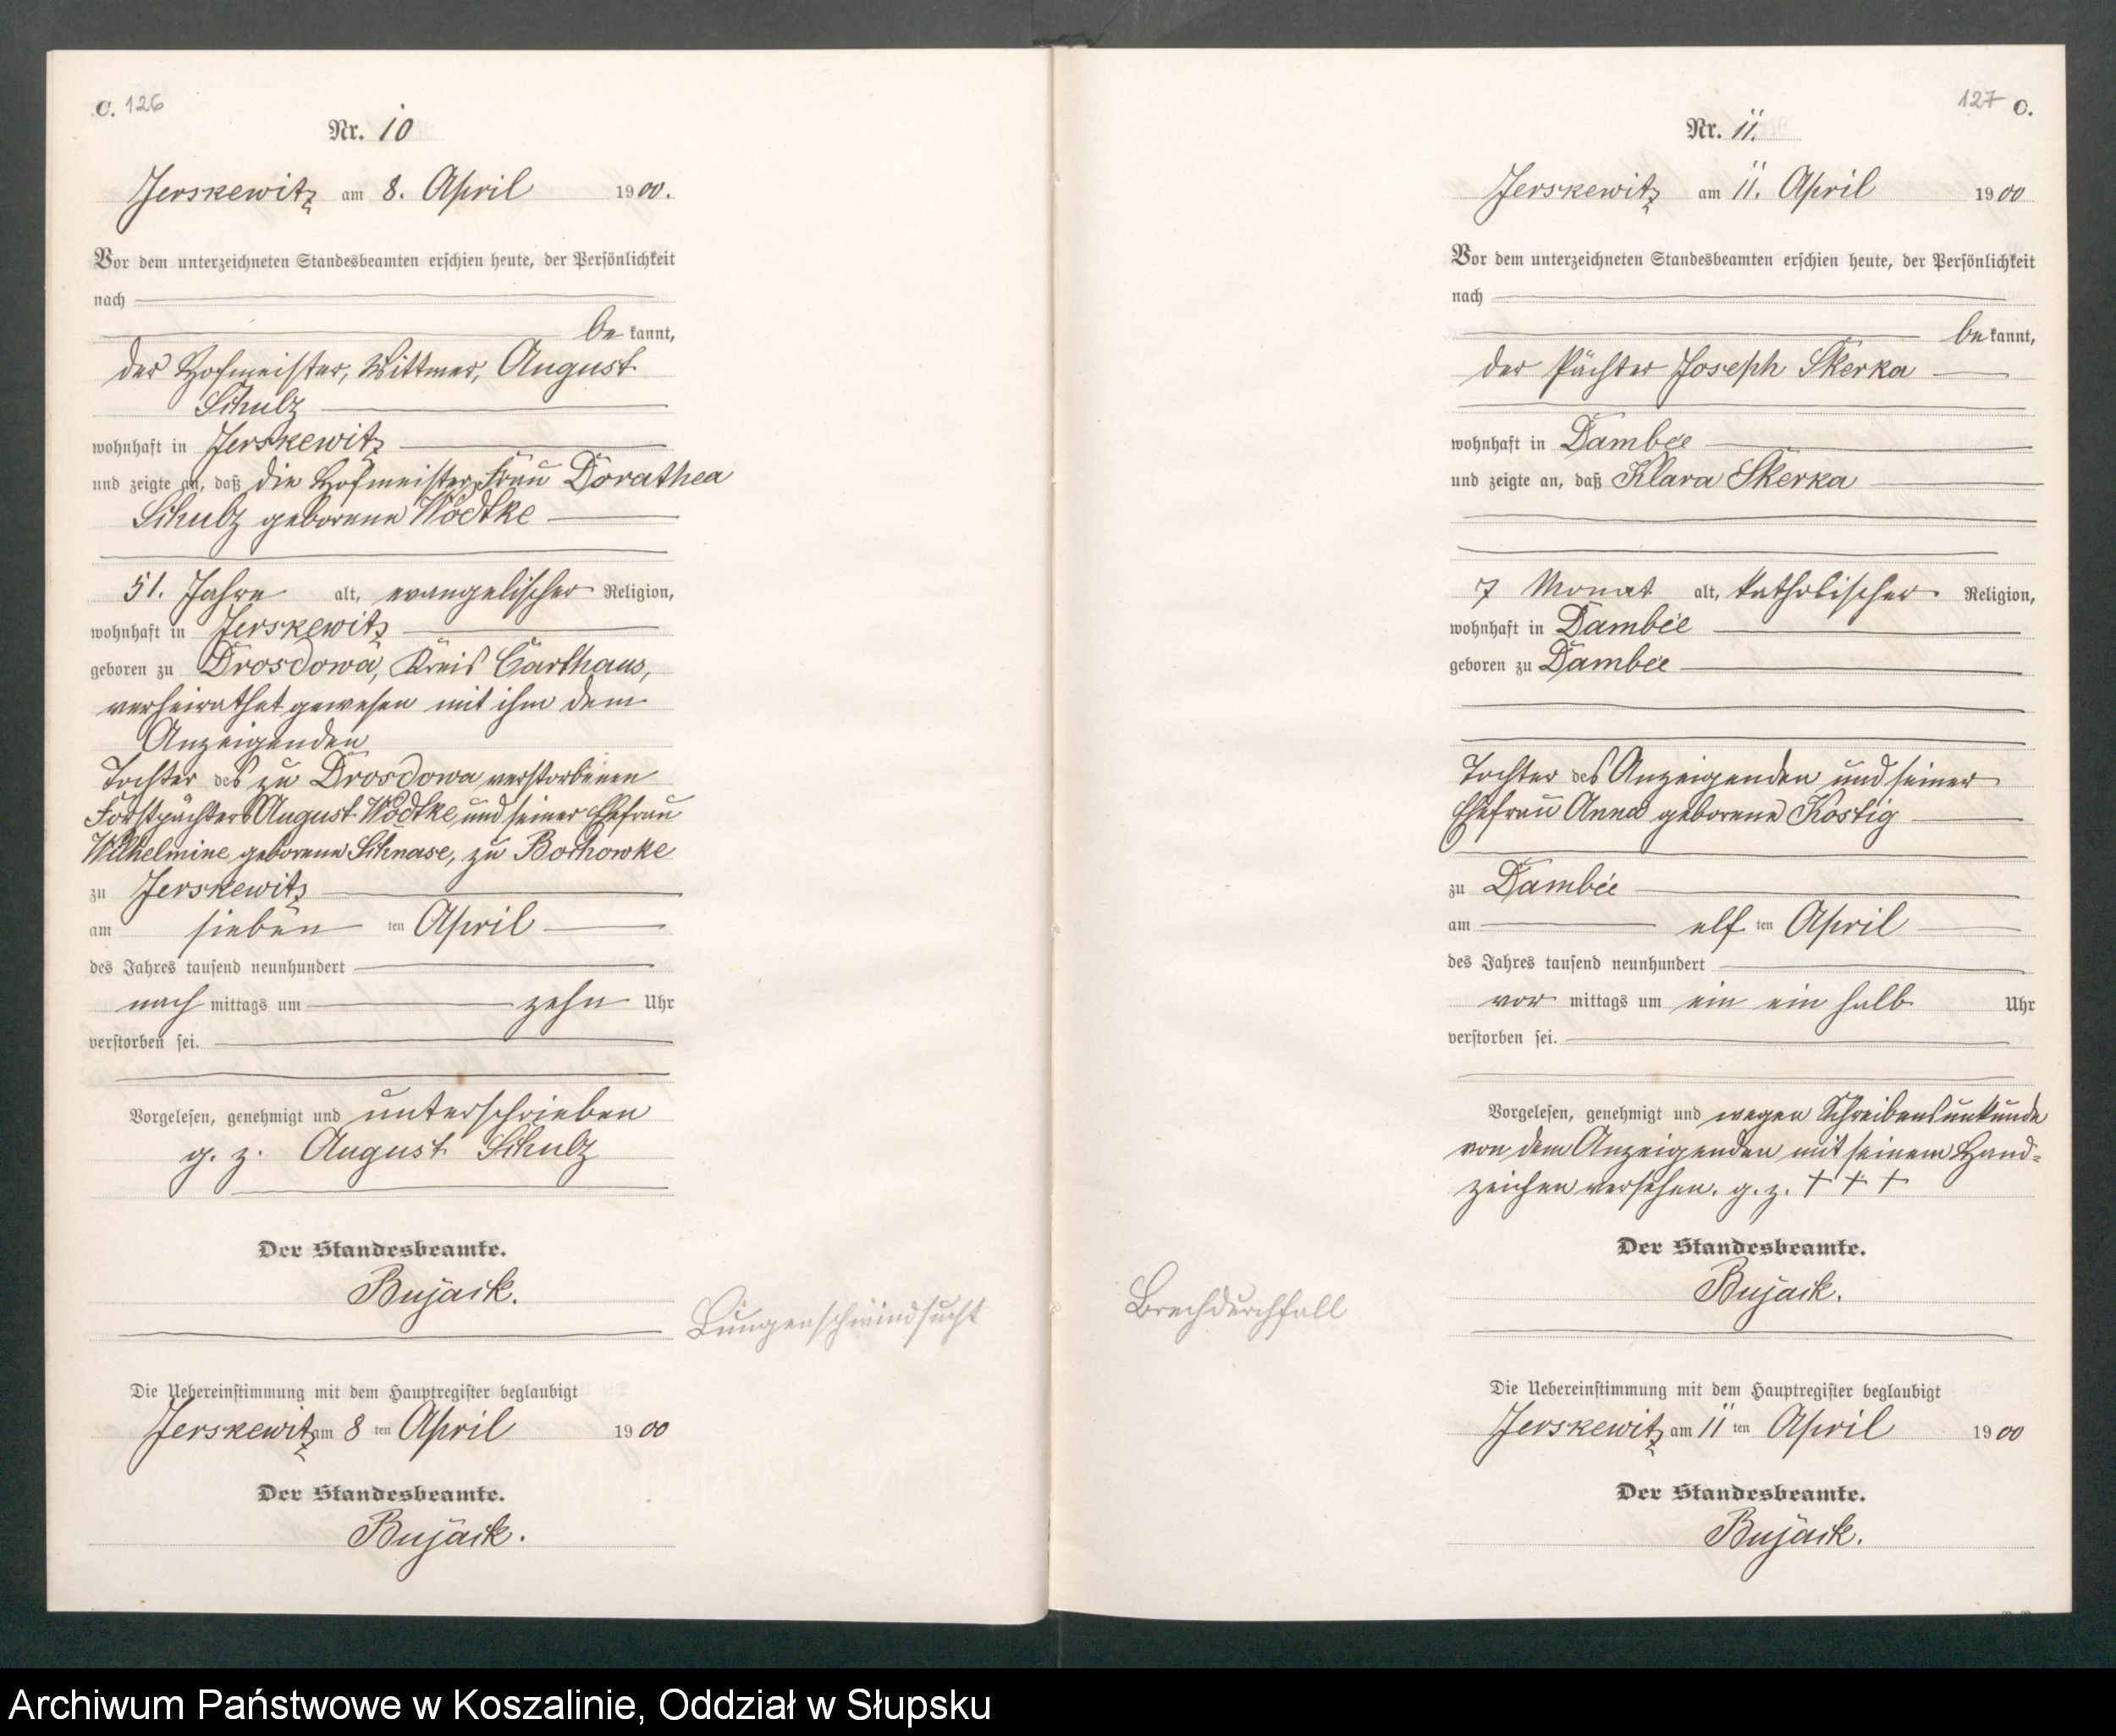 C. 126
Nr. 10
Jerskewitz am 8. April 1900.
Vor dem unterzeichneten Standesbeamten erschien heute, der Persönlichkeit
nach
be kannt,
der Hofmeister, Wittwer, August
Schulz
wohnhaft in Jerskewitz
und zeigte an, daß die Hofmeister Frau Dorathea
Schulz geborene Wödtke
51. Jahre alt, evangelischer Religion,
wohnhaft in Jerskewitz
geboren zu Drosdowa, Kreis Carthaus,
verheirathet gewesen mit ihm dem
Anzeigenden
Tochter des zu Drosdowa verstorbenen
Forstpächters August Wödtke und seiner Ehefrau
Wilhelmine geborene Schnase, zu Borhowke
zu Jerskewitz
am sieben ten April
des Jahres tausend neunhundert
nach mittags um zehn Uhr
verstorben sei.
Vorgelesen, genehmigt und unterschrieben
g. z. August Schulz
Der Standesbeamte.
Bujack.
Lungenschwindsucht
Die Uebereinstimmung mit dem Hauptregister beglaubigt
Jerskewitz am 8 ten April 1900
Der Standesbeamte.
Bujack.
127 C.
Nr. 11.
Jerskewitz am 11. April 1900
Vor dem unterzeichneten Standesbeamten erschien heute, der Persönlichkeit
nach
be kannt,
der Pächter Joseph Skerka
wohnhaft in Dambee
und zeigte an, daß Klara Skerka
7 Monat alt, katholischer Religion,
wohnhaft in Dambee
geboren zu Dambee
Tochter des Anzeigenden und seiner
Ehefrau Anna geborene Kostig
zu Dambee
am elf ten April
des Jahres tausend neunhundert
vor mittags um ein ein halb Uhr
verstorben sei.
Vorgelesen, genehmigt und wegen Schreibensunkunde
von dem Anzeigenden mit seinem Hand-
zeichen versehen. g. z. + + +
Der Standesbeamte.
Bujack.
Brechdurchfall
Die Uebereinstimmung mit dem Hauptregister beglaubigt
Jerskewitz am 11 ten April 1900
Der Standesbeamte.
Bujack.
Archiwum Państwowe w Koszalinie, Oddział w Słupsku